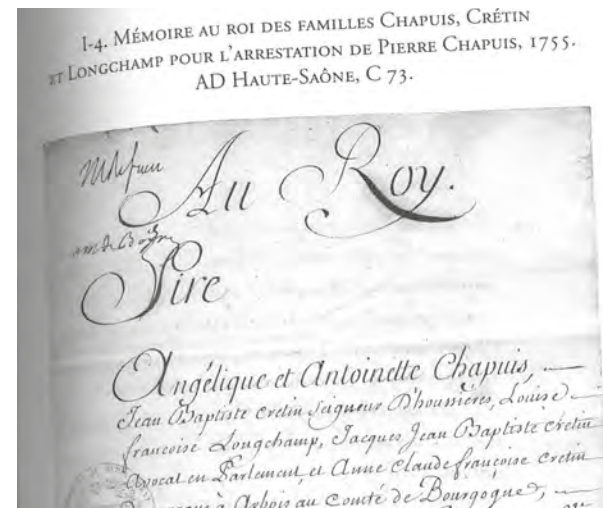 I-4. Mémoire au roi des familles Chapuis, Crétin
et Longchamp pour l'arrestation de Pierre Chapuis, 1755.
AD Haute-Saône, C 73.
Au Roy.
Sire
Angélique et Antoinette Chapuis,
Jean Baptiste Cretin Seigneur D'hounières, Louise
francoise Longchamp, Jacques Jean Baptiste Cretin
Avocat en Parlement, et Anne Claude francoise Cretin
à Arbois au Comté de Bourgogne,